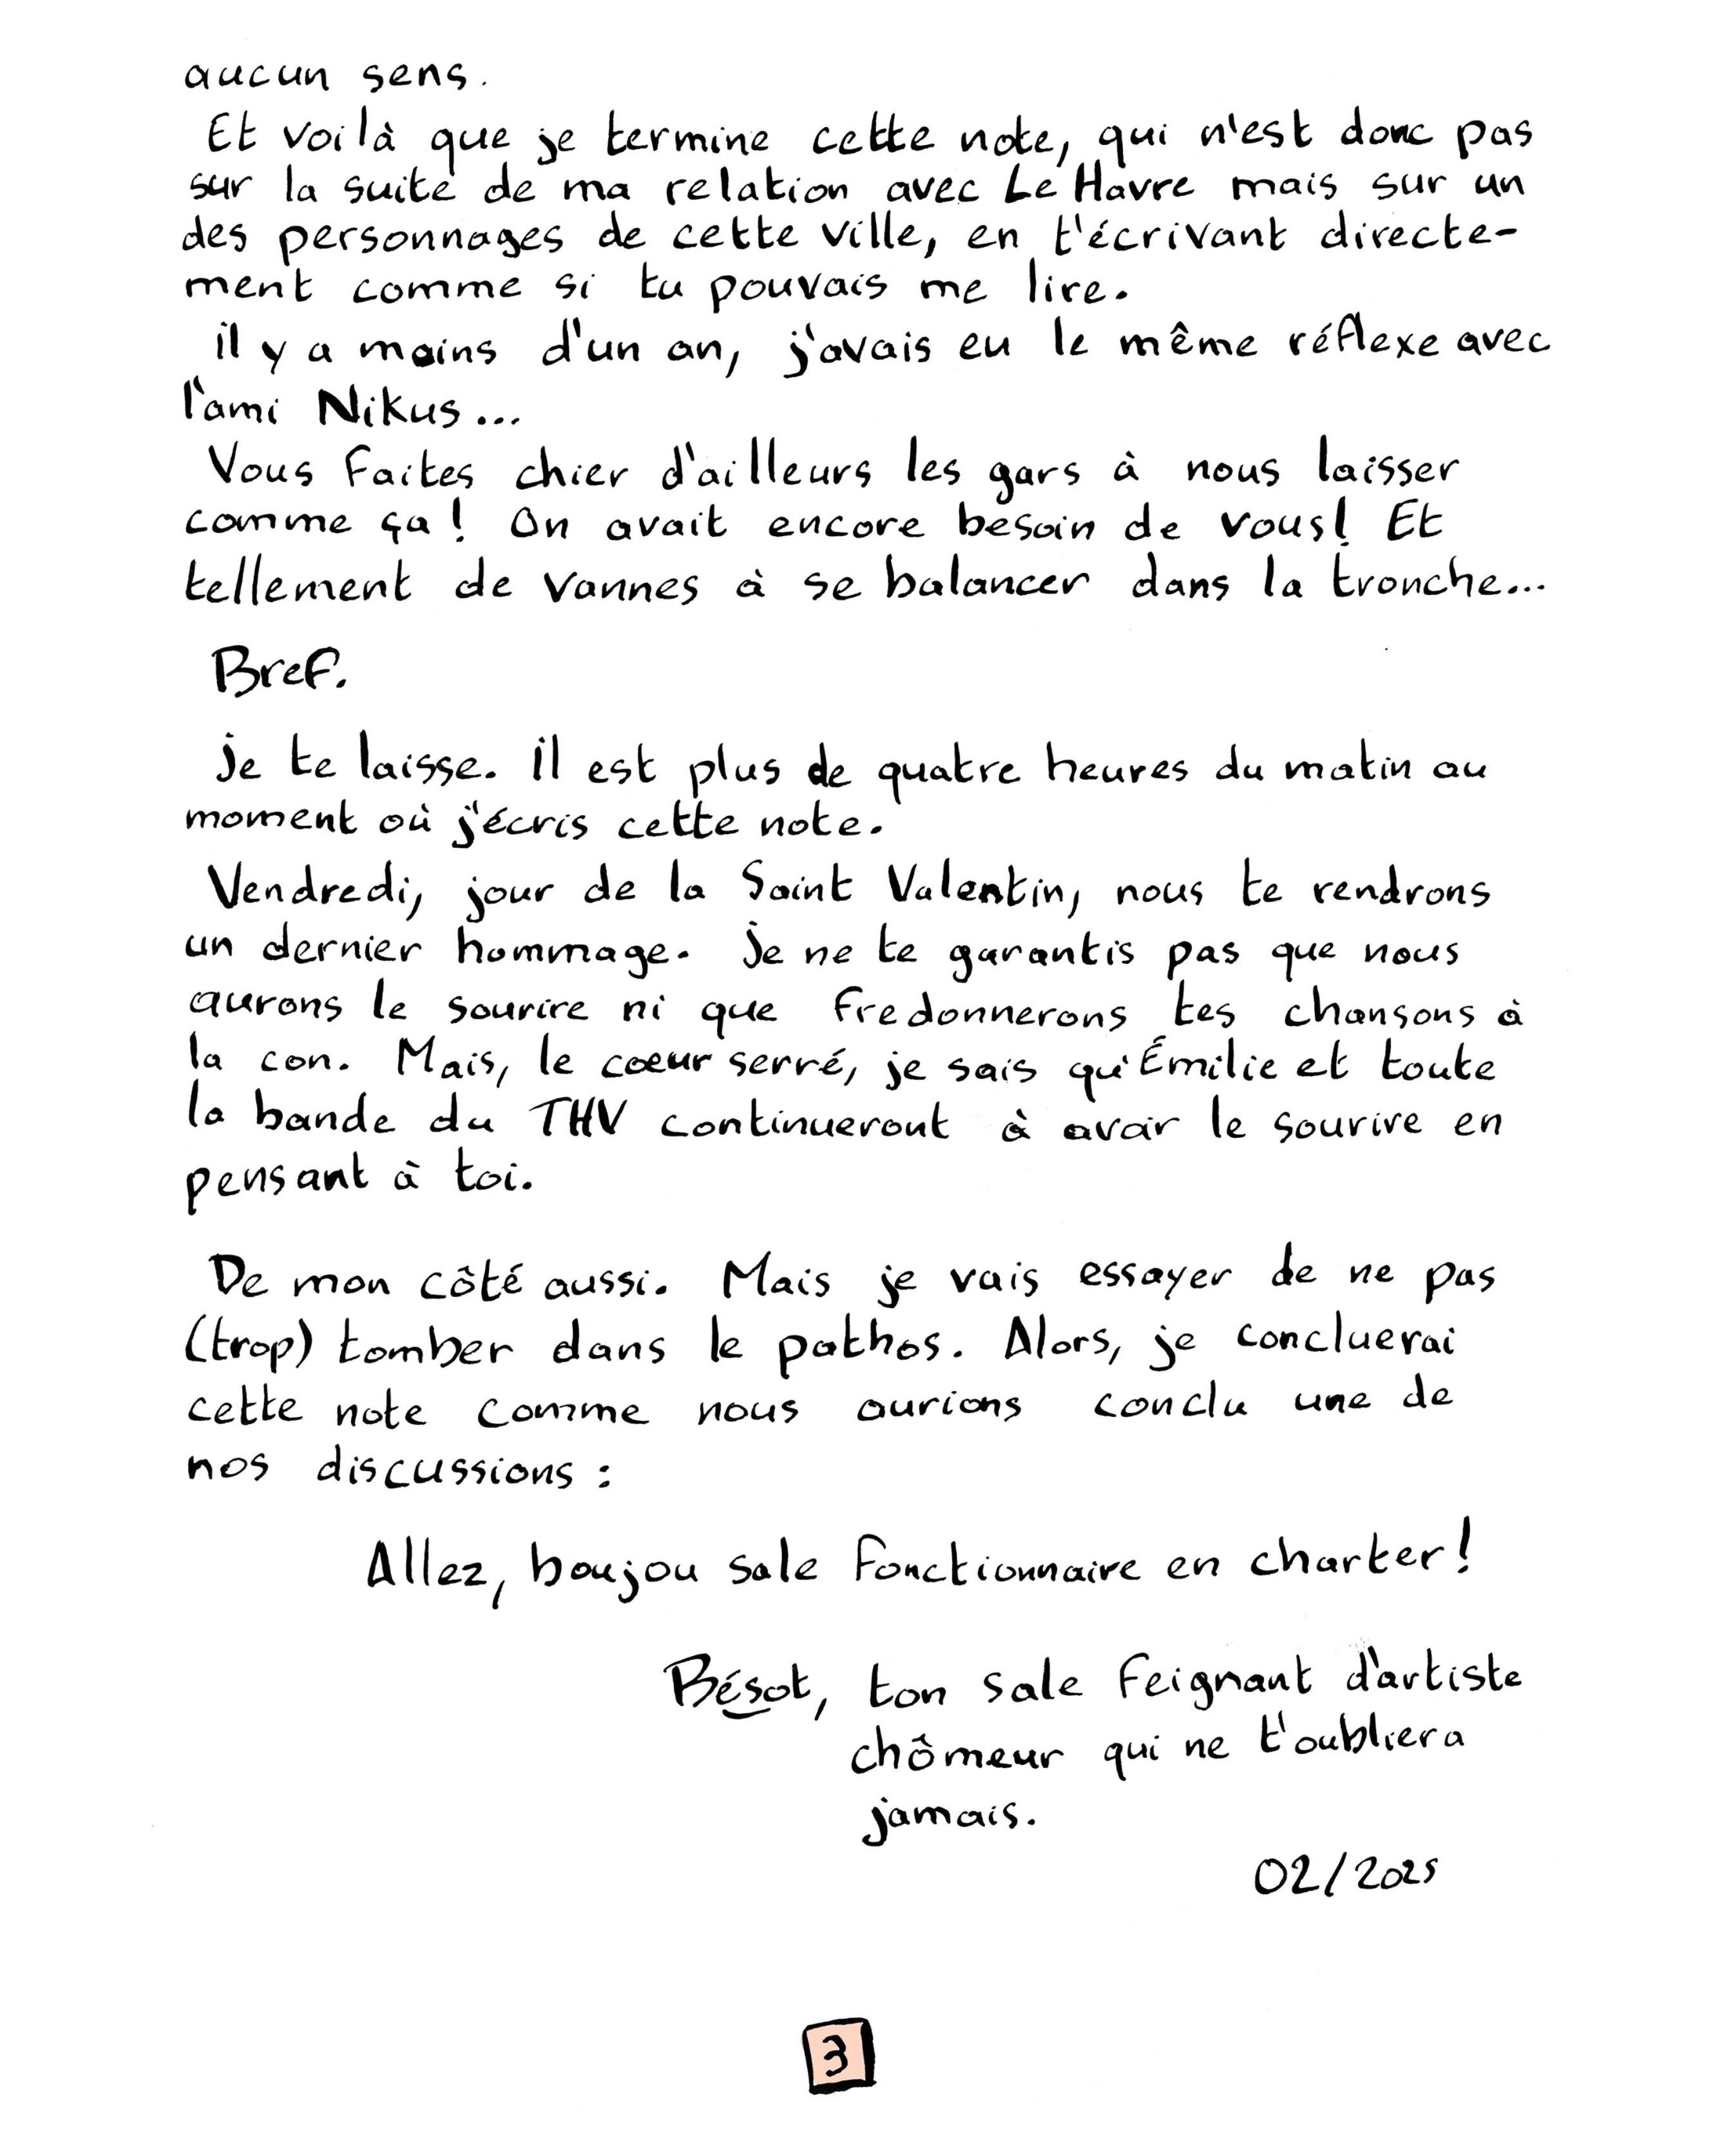 aucun sens.
Et voilà que je termine cette note, qui n'est donc pas
sur la suite de ma relation avec Le Havre mais sur un
des personnages de cette ville, en t'écrivant directe-
ment comme si tu pouvais me lire.
il y a moins d'un an, j'avais eu le même réflexe avec
l'ami Nikus...
Vous faites chier d'ailleurs les gars à nous laisser
comme ça! On avait encore besoin de vous! Et
tellement de vannes à se balancer dans la tronche...
Bref.
je te laisse. il est plus de quatre heures du matin au
moment où j'écris cette note.
Vendredi, jour de la Saint Valentin, nous te rendrons
un dernier hommage. Je ne te garantis pas que nous
aurons le sourire ni que fredonnerons tes chansons à
la con. Mais, le coeur serré, je sais qu'Émilie et toute
la bande du THV continueront à avoir le sourire en
pensant à toi.
De mon côté aussi. Mais je vais essayer de ne pas
(trop) tomber dans le pathos. Alors, je concluerai
cette note comme nous aurions conclu une de
nos discussions :
Allez, boujou sale fonctionnaire en charter!
Bésot, ton sale feignant d'artiste
chômeur qui ne t'oubliera
jamais.
02/2025
3